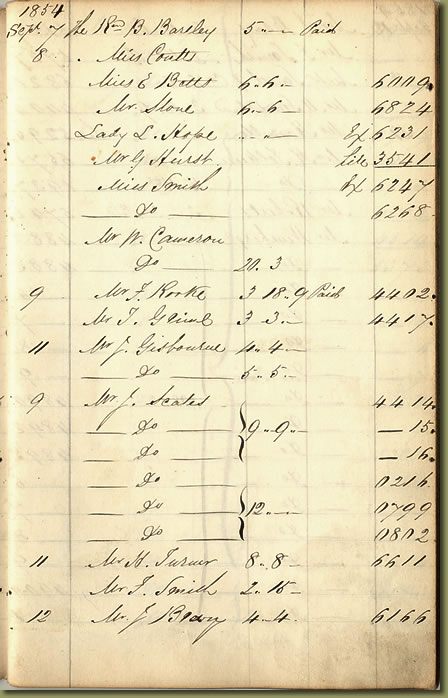 1854
Sep. 7 The Rev B. Barkley 5 "- - Paid
8 . Miss Coutts
Miss E Botts 6 "6 "- 6009
Mr. Stone 6 "6 - 6824
Lady L. Hope - "- - Ex 6231
Mr G Hurst 3541
Miss Smith Ex 6247
Do 6268
Mr W. Cameron
Do 20. 3
9 Mr J. Rorke 3 18 "9 Paid 4402
Mr T. 3 3 "- 4417.
11 Mr J. Gisbourne 4 "4 -
Do 5 "5 -
9 Mr J. Scates 4414
Do 9 "9 "- - 15.
Do - 16.
Do 0216
Do 12 "- - 0799
Do 0802
11 Mr H. Turner 8 "8 - 6611
Mr J. Smith 2 "15 -
12 Mr J 4 "4 - 6166